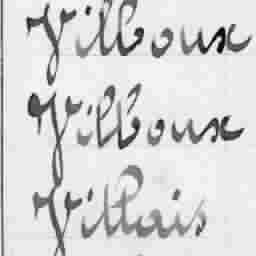 Vilboux
Vilboux
Villais